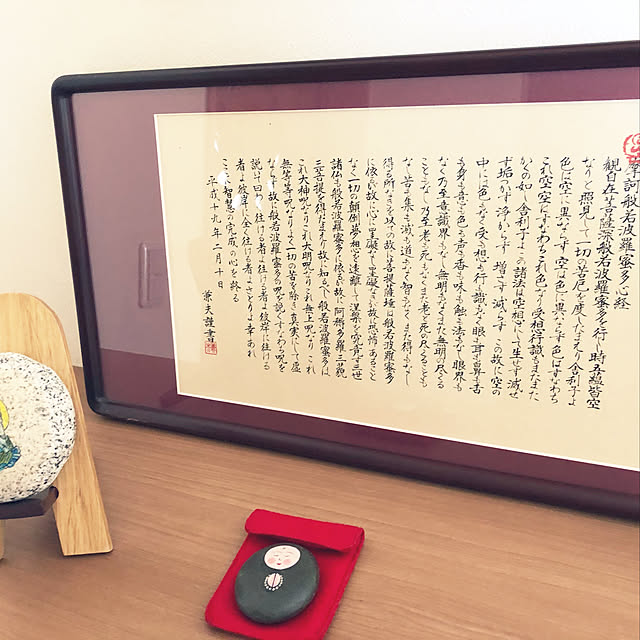 摩訶般若波羅蜜多心経
観自在菩薩深般若波羅蜜多を行じし時五蘊皆空
なりと照見して一切の苦厄を度したまえり舎利子よ
色は空に異ならず空は色に異ならず色はすなわち
これ空空はすなわちこれ色なり受想行識もまたまた
かくの如し舎利子よこの諸法は空相にして生ぜず滅せ
ず垢つかず浄からず増さず減らずこの故に空の
中には色もなく受も想も行も識もなく眼も耳も鼻も舌
も身も意もなく色も声も香も味も触も法もなし眼界も
なく乃至意識界もなし無明もなくまた無明の尽くる
こともなし乃至老も死もなくまた老と死の尽くることも
なし苦も集も滅も道もなく智もなくまた得もなし
得る所なきを以ての故に菩提薩埵は般若波羅蜜多
に依るが故に心に罣礙なし罣礙なきが故に恐怖あること
なく一切の顛倒夢想を遠離して涅槃を究竟す三世
諸仏も般若波羅蜜多に依るが故に阿耨多羅三藐
三菩提を得たまえり故に知るべし般若波羅蜜多は
これ大神呪なりこれ大明呪なりこれ無上呪なりこれ
無等等呪なりよく一切の苦を除き真実にして虚
ならず故に般若波羅蜜多の呪を説くすなわち呪を
説いて曰く往ける者よ往ける者よ彼岸に往ける
者よ彼岸に全く往ける者よさとりよ幸あれ
ここに智慧の完成の心を終る
平成十九年二月十日
兼夫謹書